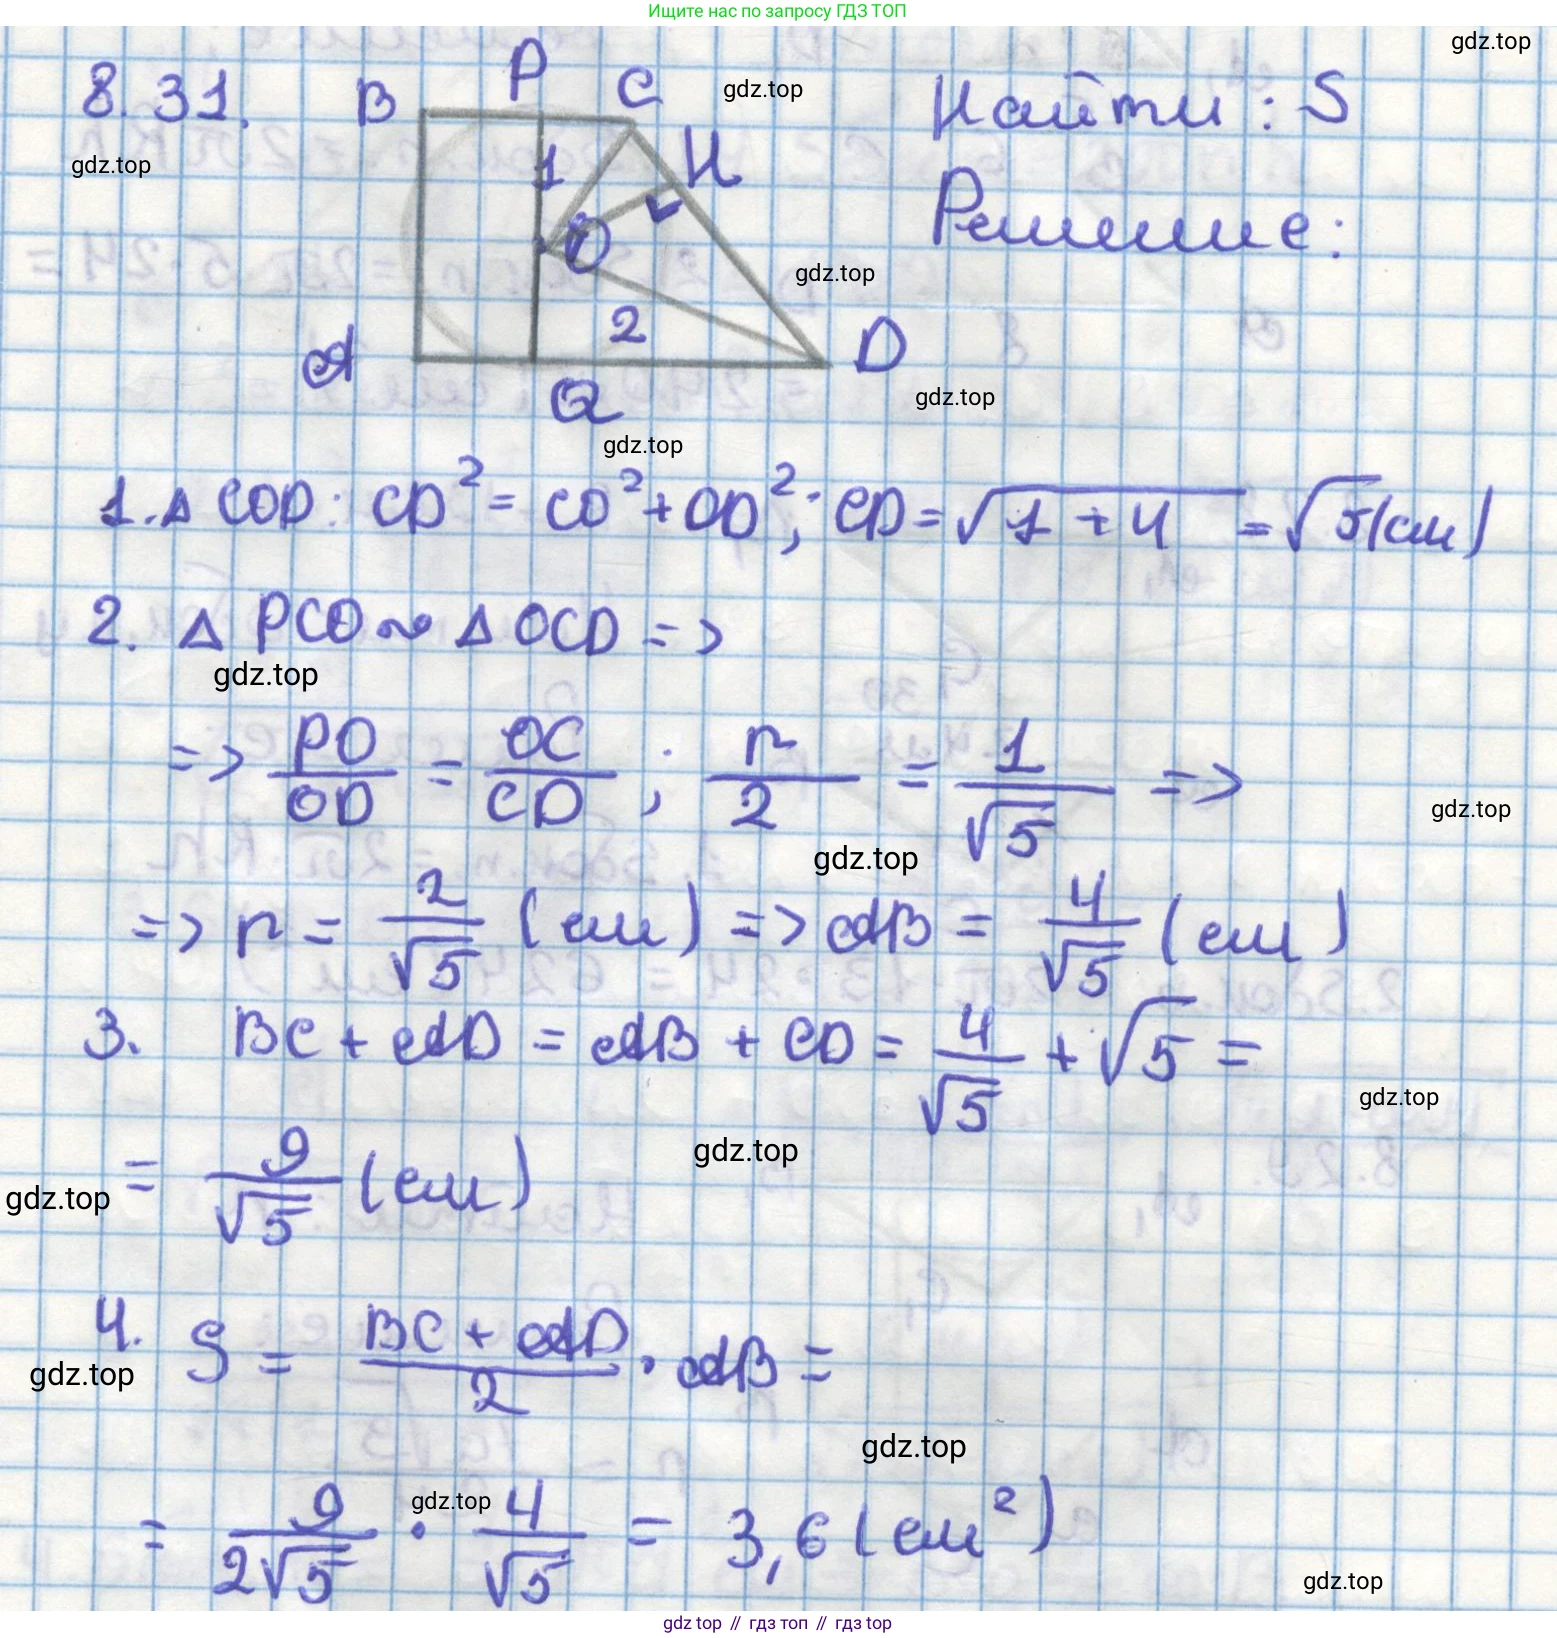 Ищите нас по запросу ГДЗ ТОП
gdz.top
8.31. B P C gdz.top Найти: S
gdz.top 1 H
Решение:
O gdz.top
2
A D
Q gdz.top
gdz.top
1. Δ COD: CD² = CO² + OD²; CD = √1 + 4 = √5 (см)
2. Δ PCO ~ Δ OCD =>
gdz.top
=> PO/OD = OC/CD; r/2 = 1/√5 =>
gdz.top
gdz.top
=> r = 2/√5 (см) => AB = 4/√5 (см)
3. BC + AD = AB + CD = 4/√5 + √5 =
gdz.top
gdz.top
= 9/√5 (см)
gdz.top
4. S = (BC + AD)/2 · AB =
gdz.top
gdz.top
gdz.top
= 9/2√5 · 4/√5 = 3,6 (см²)
gdz.top
gdz.top // гдз топ // гдз.top